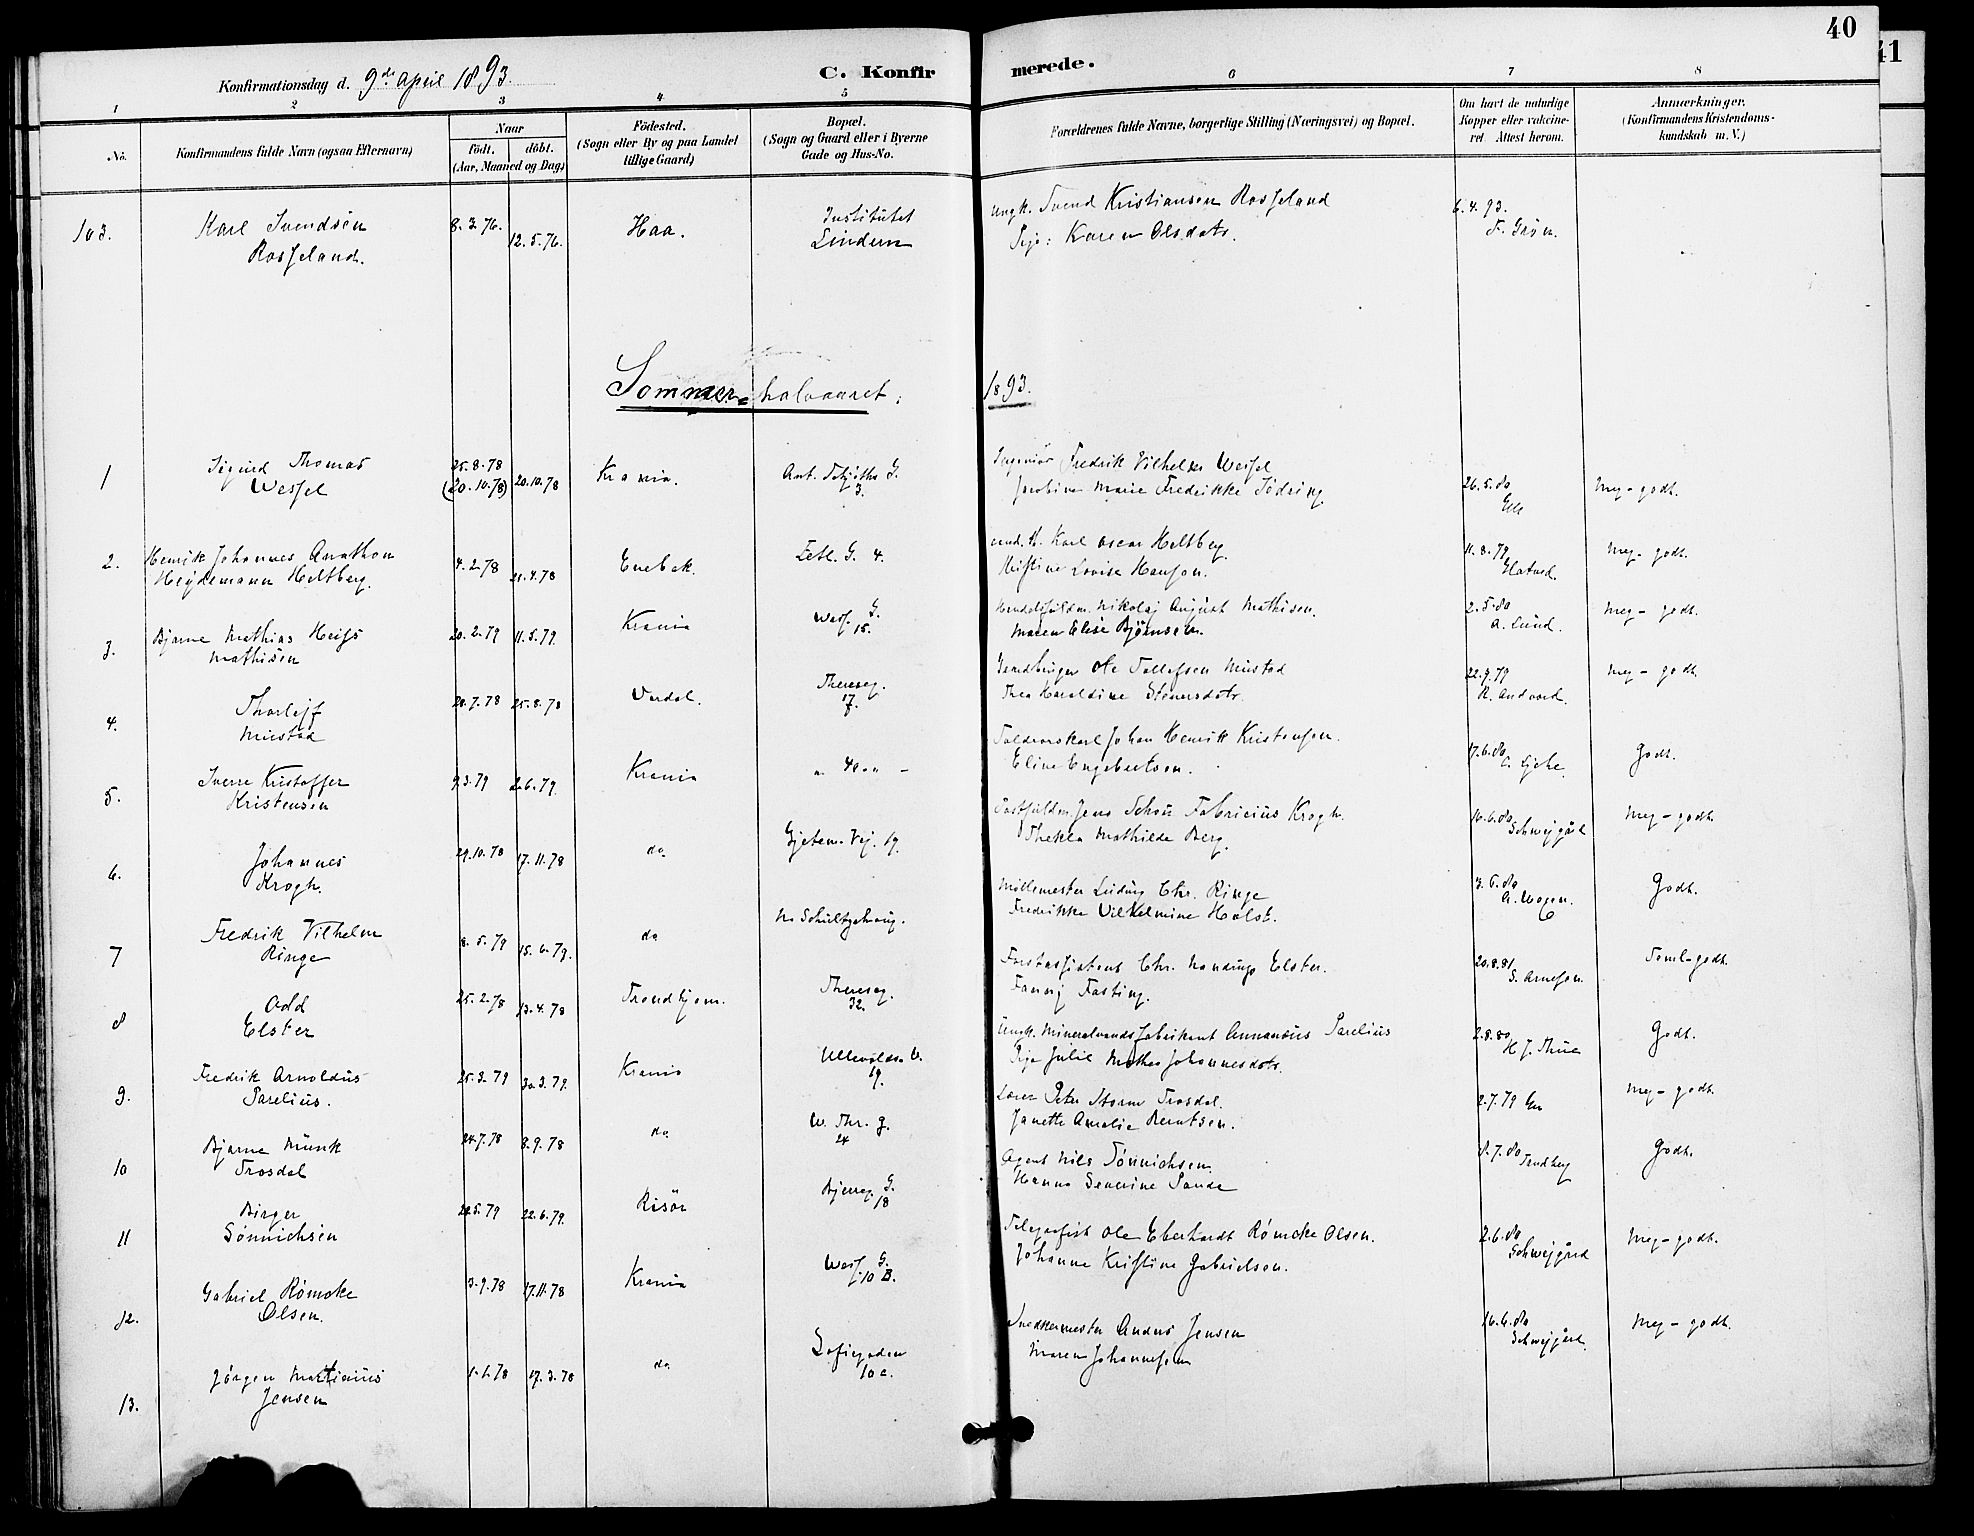 40
41
Konfirmationsdag d. 9de April 1893.
C. Konfir merede.
1 2 3 4 5 6 7 8
No.
Konfirmandens fulde Navn (ogsaa Efternavn)
Naar
födt. döbt.
(Aar, Maaned og Dag)
Födested.
(Sogn eller By og paa Landet
tillige Gaard)
Bopæl.
(Sogn og Gaard eller i Byerne
Gade og Hus-No.
Forældrenes fulde Navne, borgerlige Stilling (Næringsvei) og Bopæl.
Om havt de naturlige
Kopper eller vakcine-
ret. Attest herom.
Anmærkninger.
(Konfirmandens Kristendoms-
kundskab m. V.)
103. Karl Svendsen
Rosseland.
8.3.76. 12.5.76.
Haa.
Institutet
Lindern
Ungk. Svend Kristiansen Rosseland
Pige: Karen Olsdatr.
6.4.93.
F. Grøn.
Sommer-halvaaret: 1893.
1 Sigurd Thomas
Wessel
25.8.78
(20.10.78) 20.10.78
Krania.
Ant. Schjøths G.
3.
Ingeniør Fredrik Vilhelm Wessel
Jacobine Marie Fredrikke Södring
26.5.80
Meg-godt.
2. Henrik Johannes Anathon
Heydemann Heltberg.
4.2.78 21.4.78
Enebak.
Eetl. G. 4.
cand. th. Karl Oscar Heltberg
Kristine Lovise Hansen.
11.8.79
Meg-godt.
3. Bjarne Mathias Heifs
Mathisen
20.2.79 11.5.79.
Krania
Wess. G.
15.
Handelsfuldm. Nikolaj August Mathisen.
Maren Elise Bjørnsen.
2.5.80
A. Lund.
Meg-godt.
4. Thorleif
Mustad
20.7.78 25.8.78
Vardal.
Thereseg.
17.
Ole Tollefsen Mustad
Thea Haraldine Stenersdatr.
22.9.79
R. Andvord.
Meg-godt.
5. Sverre Kristoffer
Kristensen
9.3.79 2.6.79.
Krania
Toldvorskarl Johan Henrik Kristensen.
Eline Engebretsen.
17.6.80
Godt.
6. Johannes
Krogh.
29.10.78 17.11.78
do.
Gjetem. Vej. 19.
Postfuldm. Jens Schou Fabricius Krogh.
Thekla Mathilde Berg.
16.6.80
Schwejgård
Meg-godt.
7 Fredrik Vilhelm
Ringe
8.5.79 15.6.79.
do
Møllemester Ludvig Chr. Ringe
Fredrikke Vilhelmine Holst.
3.6.80
Godt.
8 Odd
Elster
25.2.78 13.4.78
Trondhjem.
Thereseg.
32.
Forstassistent Chr. Mandrup Elster.
Fanny Fasting.
20.8.81
S. Arnesen.
Toml-godt.
9. Fredrik Arnoldus
Parelius.
25.3.79 30.3.79.
Krania
Ullevoldsv.
19.
Ungk. Mineralvandsfabrikant Ammandus Parelius
Pige Julie Mathea Johannesdatr.
2.8.80
H J. Thue
Godt.
10 Bjarne Munk
Trosdal
24.7.78 8.9.78
do
W. Thr. g.
24
Lærer Peter Storm Trosdal.
Janette Amalie Berntsen.
2.7.79
Meg-godt.
11 Birger
Sönnichsen
22.5.79 22.6.79.
Risör
Bjerreg. G.
18
Agent Nils Sönnichsen.
Hanna Severine Sande
8.7.80
Sandberg
Godt.
12. Gabriel Rømcke
Olsen.
3.9.78 17.11.78
Krania
Wess. G.
10 B.
Telegrafist Ole Eberhardt Rømcke Olsen.
Johanne Kristine Gabrielsen.
2.6.80
Schwejgård
Meg-godt.
13. Jörgen Martinius
Jensen
17.3.78
do
Sofiegaden
10 c.
Snedkermester Anders Jensen
Maren Johannesen
16.6.80
Schwejgård.
Meg-godt.